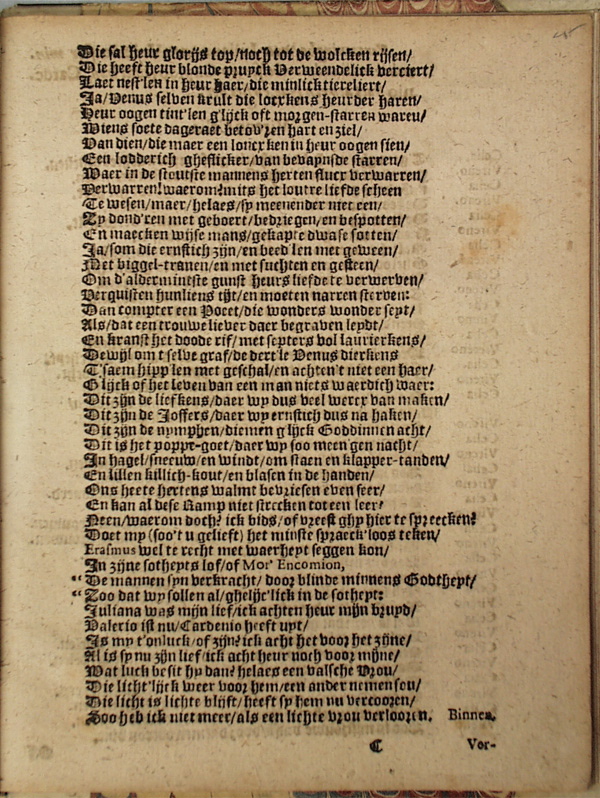 Die sal heur glorijs top/noch tot de wolcken rijsen/
Die heeft heur blonde pruyck Verweendelick verciert/
Laet nest'len in heur haer/die minlick tiereliert/
Ja/Venus selven krult die locrkens heur der haren/
Heur oogen tint'len g'lijck oft morgen-starren waren/
Wiens soete dageraet betov'ren hart en ziel/
Van dien/die maer een loncxken in heur oogen sien/
Een lodderich ghesticker/van bevaynsde starren/
Waer in de stoutste mannens herten flucx verwarren/
Verwarren! waerom? mits het loutre liefde scheen
Te wesen/maer/helaes/sy meenender niet een/
Zy dond'ren met geboert/bedriegen/en bespotten/
En maecken wijse mans/gekapte dwase sotten/
Ja/som die ernstich zijn/en beed'len met geween/
Met biggel-tranen/en met suchten en gesteen/
Om d'aldermintste gunst heurs liefde te verwerven/
Verquisten hunliens tijt/en moeten narren sterven:
Dan compter een Poeet/die wonders wonder seyt/
Als/dat een trouwe liever daer begraven leydt/
En kranst het doode rif/met septers vol laurierkens/
Dewijl om t selve graf/de dert'le Venus dierkens
T'saem hipp'len met geschal/en achten't niet een haer/
G'lijck of het leven van een man niets waerdich waer:
Dit zijn de liefkens/daer wy dus veel wercx van maken/
Dit zijn de Joffers/daer wy ernstich dus na haken/
Dit zijn de nymphen/diemen g'lijck Goddinnen acht/
Dit is het poppe-goet/daer wy soo meen'gen nacht/
In hagel/sneeuw/en windt/om staen en klapper-tanden/
En lillen killich-kout/en blasen in de handen/
Ons heete hertens walmt bevriesen even seer/
En kan al dese Ramp niet strecken tot een leer?
Neen/waerom doch? ick bids/of vreest ghy hier te spreecken?
Doet my (soo't u gelieft) het minste spraeck'loos teken/
Erasmus wel te recht met waerheyt seggen kon/
In zijne sotheyts lof/of Mor' Encomion,
“ De mannen syn verkracht/door blinde minnens Godtheyt/
“ Zoo dat wy sollen al/ghelijc'lick in de sotheyt:
Juliana was mijn lief/ick achten heur mijn bruyd/
Valerio ist nu/Cardenio heeft uyt/
Is my t'onluck/of zijn? ick acht het voor het zijne/
Al is sy nu zijn lief/ick acht heur noch voor mijne/
Wat luck besit hy dan? helaes een valsche Vrou/
Die licht'lijck weer voor hem/een ander nemen sou/
Die licht is lichte blijft/heeft sy hem nu vercooren/
Soo heb ick niet meer/als een lichte vrou verlooren. Binnen.
C Vor-